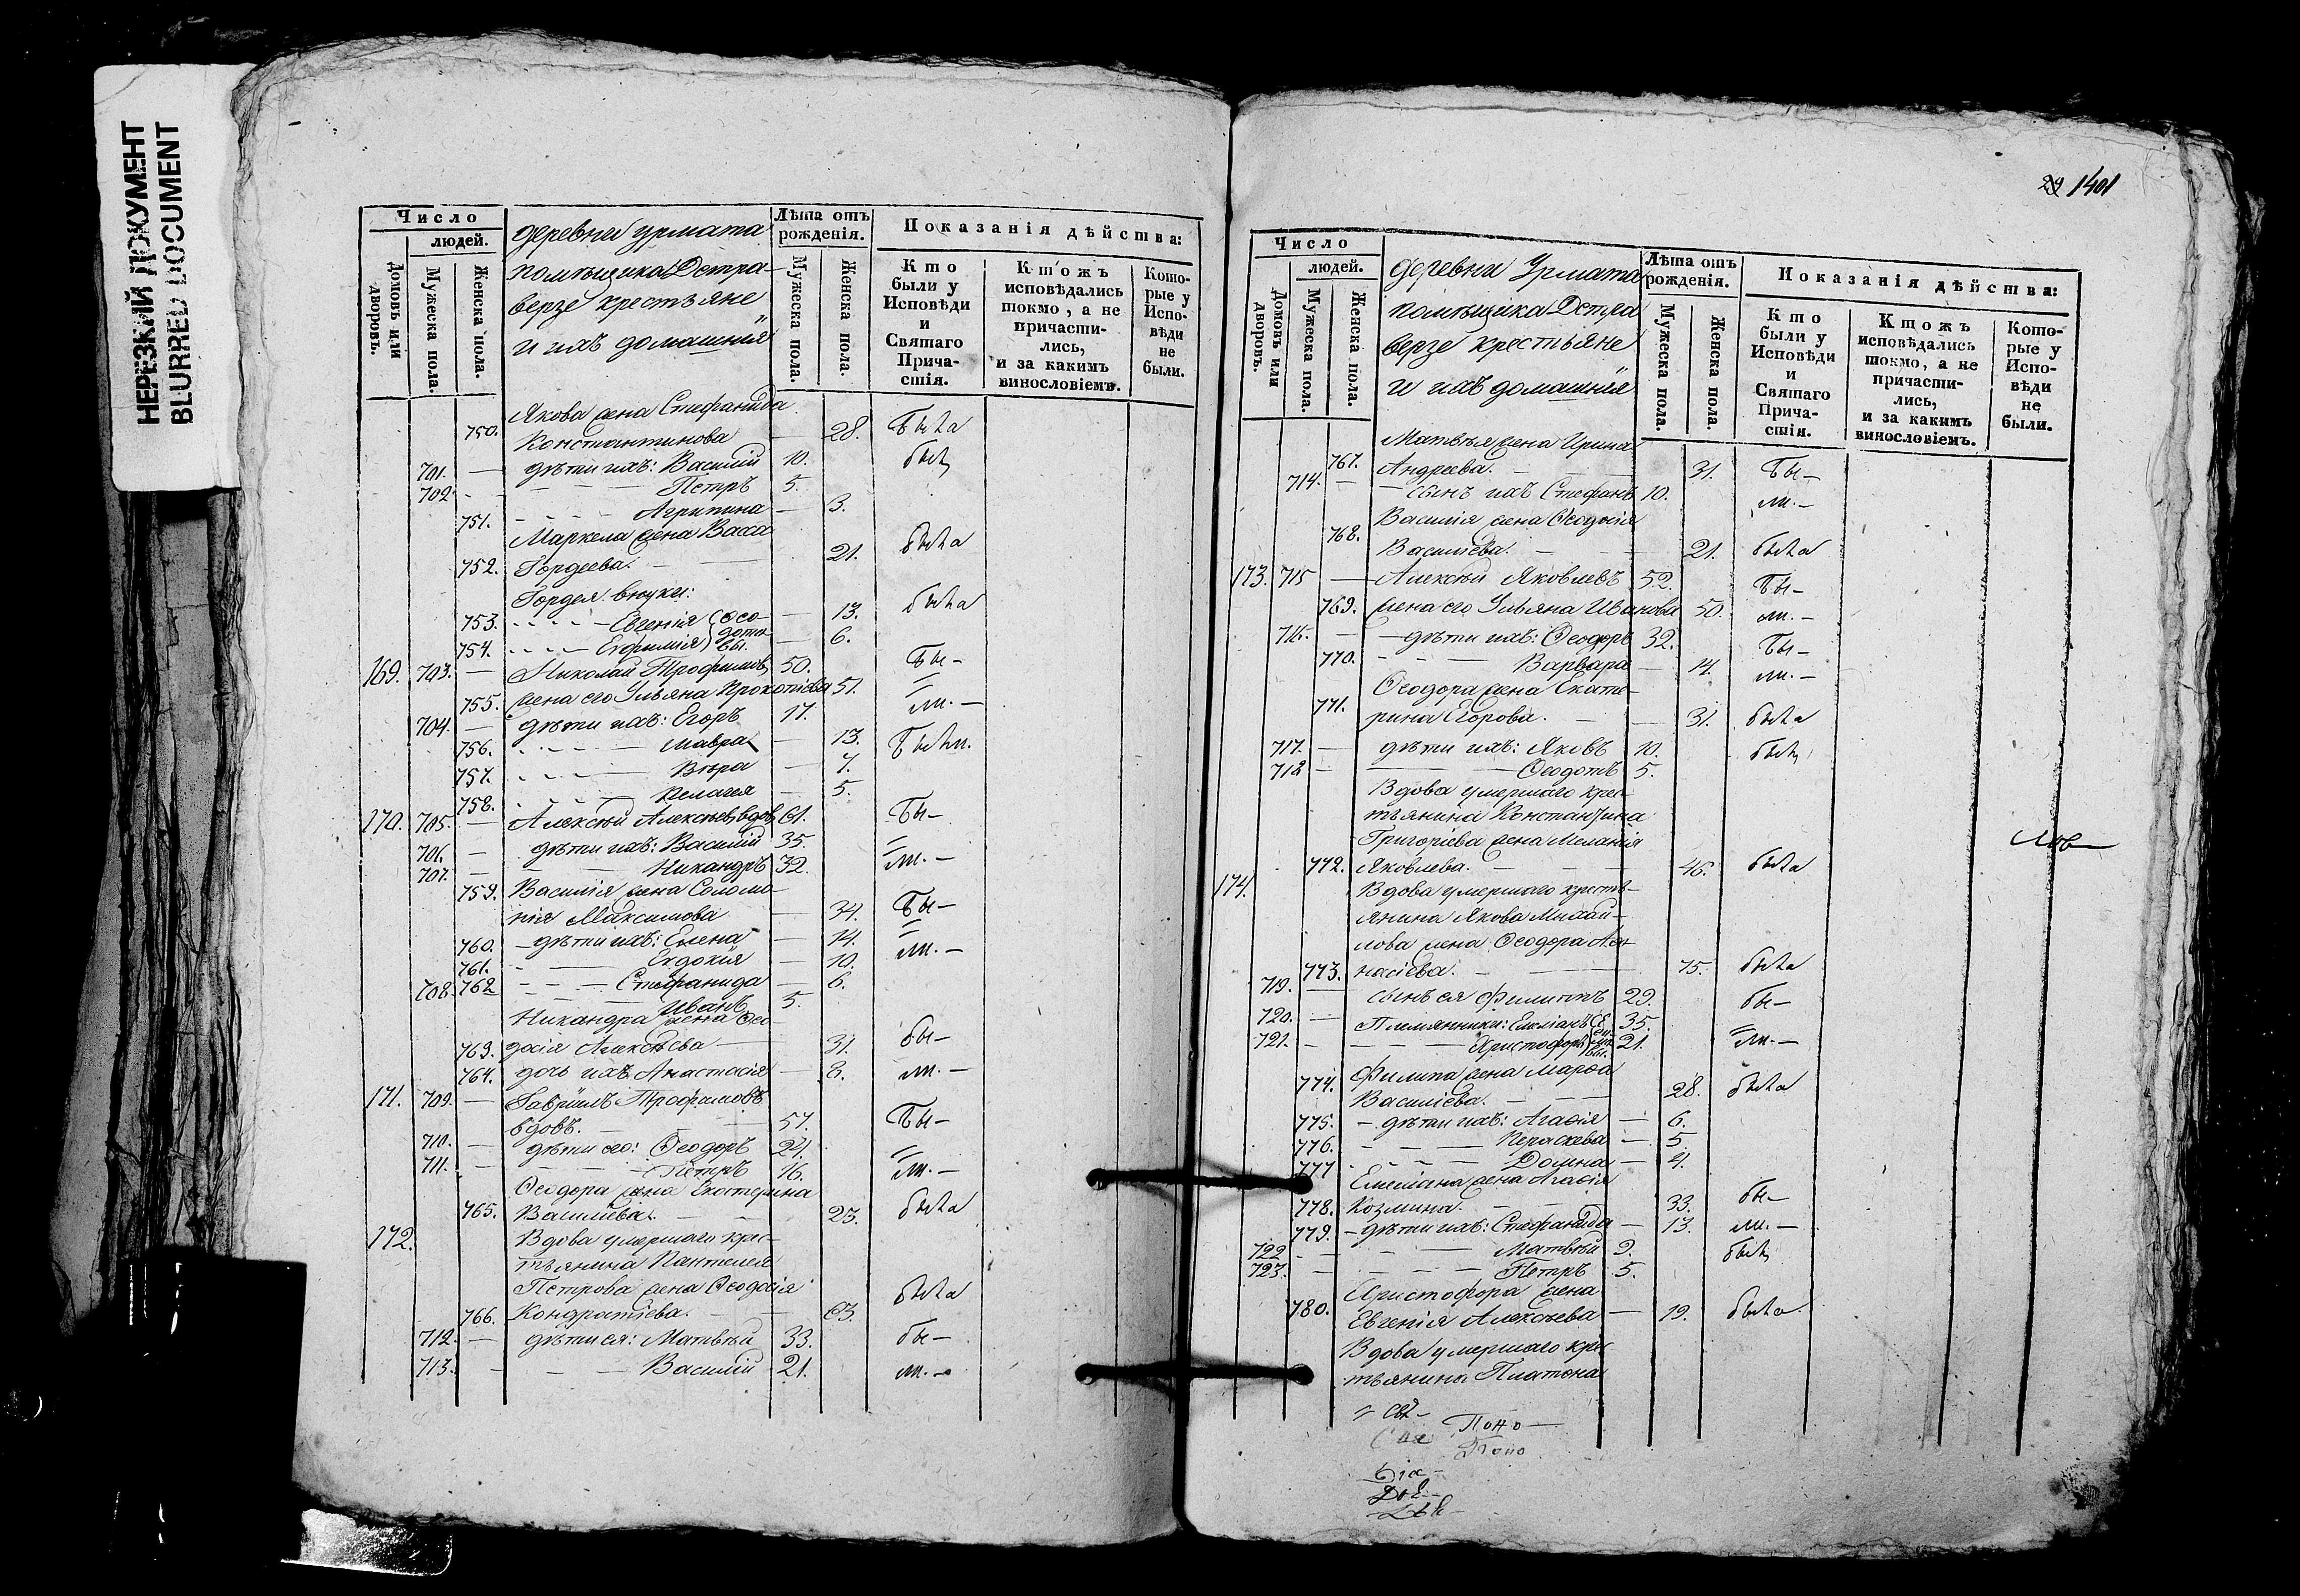 НЕРЕЗКИЙ ДОКУМЕНТ
BLURRED DOCUMENT
Число
людей.
Домовъ или дворовъ.
Мужеска пола.
Женска пола.
деревни Урмата
помѣщика Детра-
верзе крестьяне
и ихъ домашнія
Лѣта отъ рожденія.
Мужеска пола.
Женска пола.
Показанія дѣйства:
Кто были у Исповѣди и Святаго Причастія.
Ктожъ исповѣдались токмо, а не причастились, и за какимъ винословіемъ.
Которые у Исповѣди не были.
Якова жена Стефанида
750. Константинова — 28. была
701. — дѣти ихъ: Василій 10. были
702. — Петръ 5.
751. — Агрипина — 3.
Маркела жена Васса
752. Гордеева. — 21. была
Гордея внуки:
753. — Евгенія Ѳео- — 13. была
754. — Ефимія доты вы. — 6.
169. 703. — Николай Трофимовъ 50. бы-
755. жена его Ульяна Прокопіева 51.
704. — дѣти ихъ: Егоръ 17. ли. —
756. — Мавра — 13. были.
757. — Вѣра — 7.
758. — Пелагея — 5.
170. 705. — Алексѣй Алексѣевъ вдовъ 61. бы-
706. — дѣти ихъ: Василій 35.
707. — Никандръ 32. ли. —
759. Василія жена Соломо-
нія Максимова — 34. бы-
760. — дѣти ихъ: Елена — 14.
761. — Евдокія — 10. ли. —
708. 762 — Стефанида — 6.
Иванъ 5.
Никандра жена Ѳео-
763. досія Алексѣева — 31. бы-
764. дочь ихъ Анастасія — 6. ли. —
171. 709. — Гавріилъ Трофимовъ
вдовъ. — 57. бы-
710. — дѣти его: Ѳеодоръ 24.
711. — Петръ 16. ли. —
Ѳеодора жена Екатерина
765. Василіева. — 23. была
172. Вдова умершаго крес-
тьянина Пантелея
Петрова жена Ѳеодосія
766. Кондратіева. — 63. была
712. — дѣти ея: Матвѣй 33. бы-
713. — Василій 21. ли. —
29 1401
Число
людей.
Домовъ или дворовъ.
Мужеска пола.
Женска пола.
деревни Урмата
помѣщика Детра
верзе крестьяне
и ихъ домашнія
Лѣта отъ рожденія.
Мужеска пола.
Женска пола.
Показанія дѣйства:
Кто были у Исповѣди и Святаго Причастія.
Ктожъ исповѣдались токмо, а не причастились, и за какимъ винословіемъ.
Которые у Исповѣди не были.
Матвѣя жена Ирина
767. Андреева. — 31. бы-
714. — сынъ ихъ Стефанъ 10. ли. —
Василія жена Ѳеодосія
768. Василіева. — 21. была
173. 715 — Алексѣй Яковлевъ 52. бы-
769. жена его Ульяна Иванова 50. ли. —
716. — дѣти ихъ: Ѳеодоръ 32. бы-
770. — Варвара — 14. ли. —
Ѳеодора жена Екате-
771. рина Егорова. — 31. была
717. — дѣти ихъ: Яковъ 10. были
718 — Ѳеодотъ 5.
Вдова умершаго крес-
тьянина Константина
Григоріева жена Меланія
772. Яковлева. — 46. была
174. Вдова умершаго кресть-
янина Якова Михай-
лова жена Ѳеодора Аѳа-
773. насіева. — 75. была
719. — сынъ ея Филиппъ 29. бы-
720. — Племянники: Емліанъ 35.
721. — Христофоръ 21. ли. —
Филипа жена Марѳа
774. Василіева. — 28. была
775. — дѣти ихъ: Агафія — 6.
776. — Параскева — 5
777 — Домна — 4.
Емеліана жена Агафія
778. Козмина. — 33. бы-
779. — дѣти ихъ: Стефанида — 13. ли. —
722 — Матвѣй 9. были
723. — Петръ 5.
Христофора жена
780. Евгенія Алексѣева — 19. была
Вдова умершаго крес-
тьянина Платона